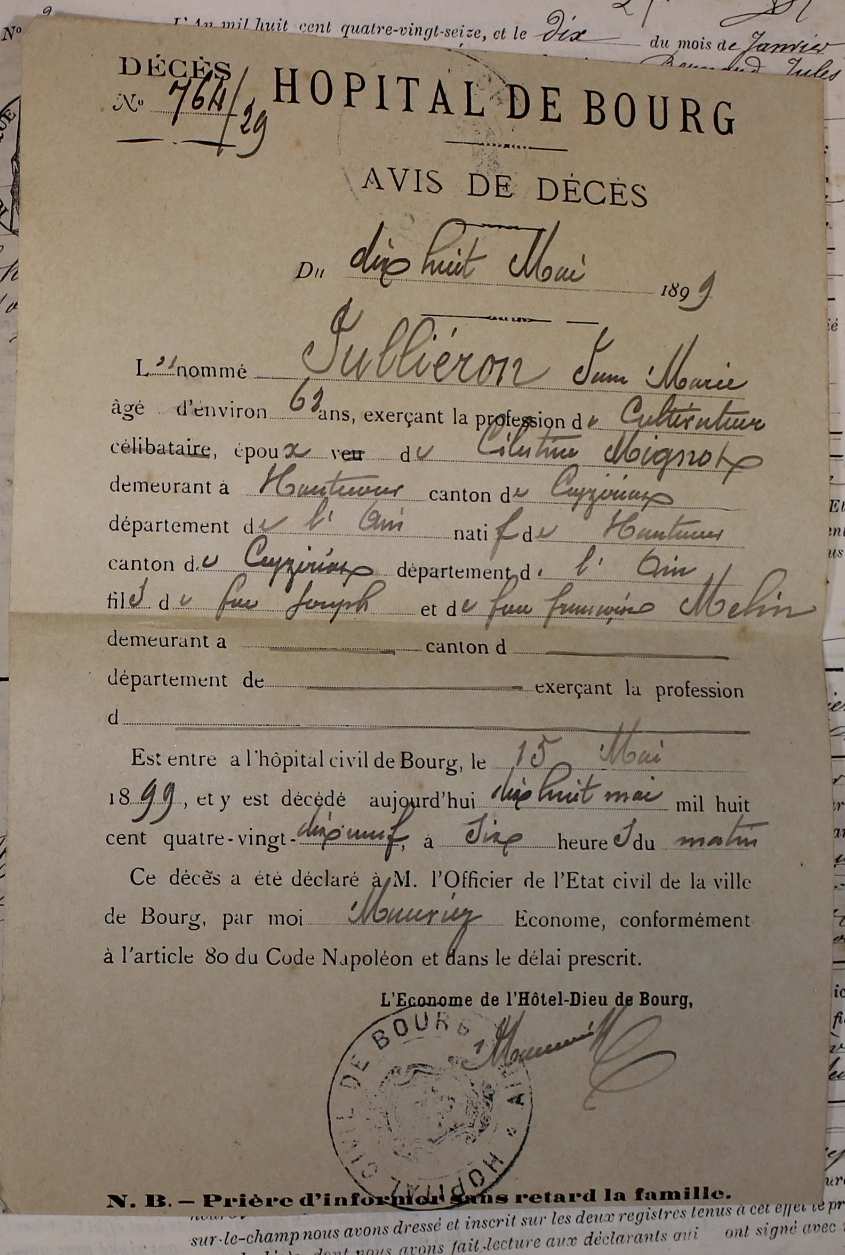 L'An mil huit cent quatre-vingt-seize, et le dix du mois de Janvier
Jules
DÉCÈS
N° 764/29
HOPITAL DE BOURG
AVIS DE DÉCÈS
Du dix huit Mai 1899
L nommé Julliéron Jean Marie
âgé d'environ 62 ans, exerçant la profession de Cultivateur
célibataire, époux veu de Célestine Mignot
demeurant à canton de Ceyzériat
département de l'Ain natif de
canton de Ceyzériat département d. l'Ain
fils de feu Joseph et de feue françoise Melin
demeurant a canton d
département de exerçant la profession
d
Est entre a l'hôpital civil de Bourg, le 15 Mai
1899, et y est décédé aujourd'hui dix huit mai mil huit
cent quatre-vingt-dix neuf, à Six heures du matin
Ce décès a été déclaré à M. l'Officier de l'Etat civil de la ville
de Bourg, par moi Econome, conformément
à l'article 80 du Code Napoléon et dans le délai prescrit.
L'Econome de l'Hôtel-Dieu de Bourg,
HOPITAL CIVIL DE BOURG * AIN *
N. B. — Prière d'informer sans retard la famille.
sur-le-champ nous avons dressé et inscrit sur les deux registres tenus à cet effet le
nous avons fait lecture aux déclarants qui ont signé avec